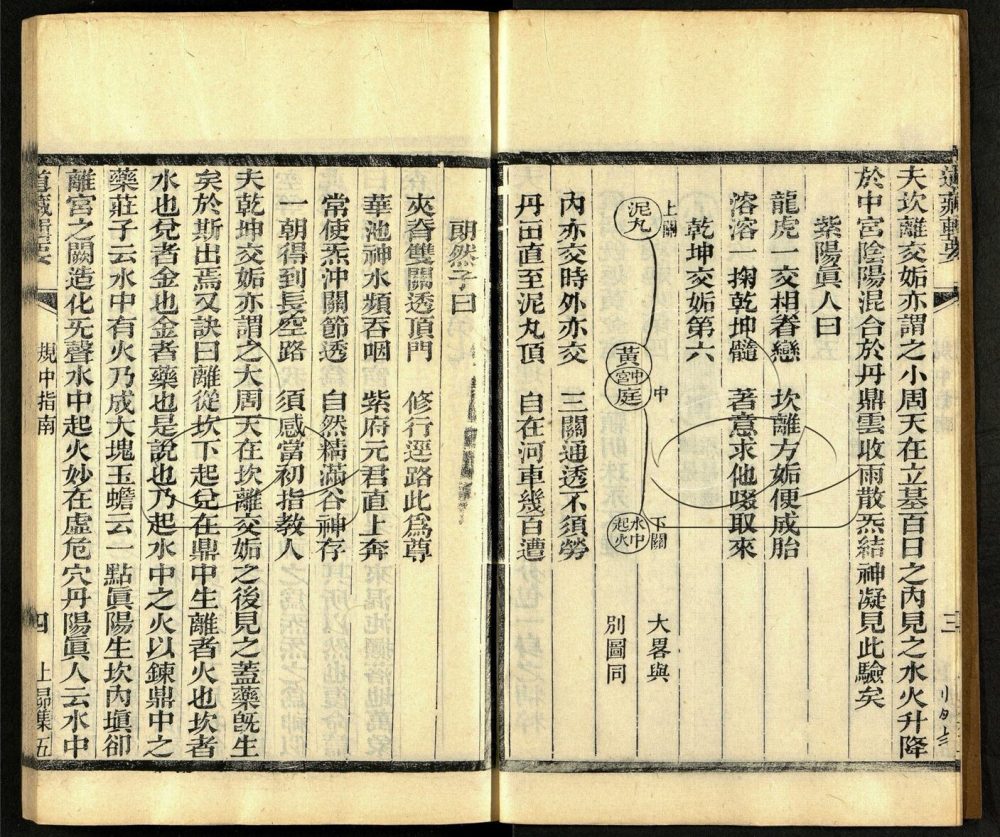 道藏輯要
三
夫坎離交姤亦謂之小周天在立基百日之內見之水火升降
於中宮陰陽混合於丹鼎雲收雨散炁結神凝見此驗矣
紫陽眞人曰
龍虎一交相眷戀　坎離方姤便成胎
溶溶一掬乾坤髓　著意求他啜取來
乾坤交姤第六
上關
泥丸
中
黃庭
中宮
下關
水中起火
大畧與
別圖同
內亦交時外亦交　三關通透不須勞
丹田直至泥丸頂　自在河車幾百遭
朗然子曰
夾脊雙關透頂門　修行逕路此爲尊
華池神水頻吞咽　紫府元君直上奔
常使炁沖關節透　自然精滿谷神存
一朝得到長空路　須感當初指教人
夫乾坤交姤亦謂之大周天在坎離交姤之後見之蓋藥旣生
矣於斯出焉又訣曰離從坎下起兌在鼎中生離者火也坎者
水也兌者金也金者藥也是說也乃起水中之火以鍊鼎中之
藥莊子云水中有火乃成大塊玉蟾云一點眞陽生坎內塡卻
離宮之闕造化无聲水中起火妙在虛危穴丹陽眞人云水中
道藏輯要
規中指南
四
上昴集五